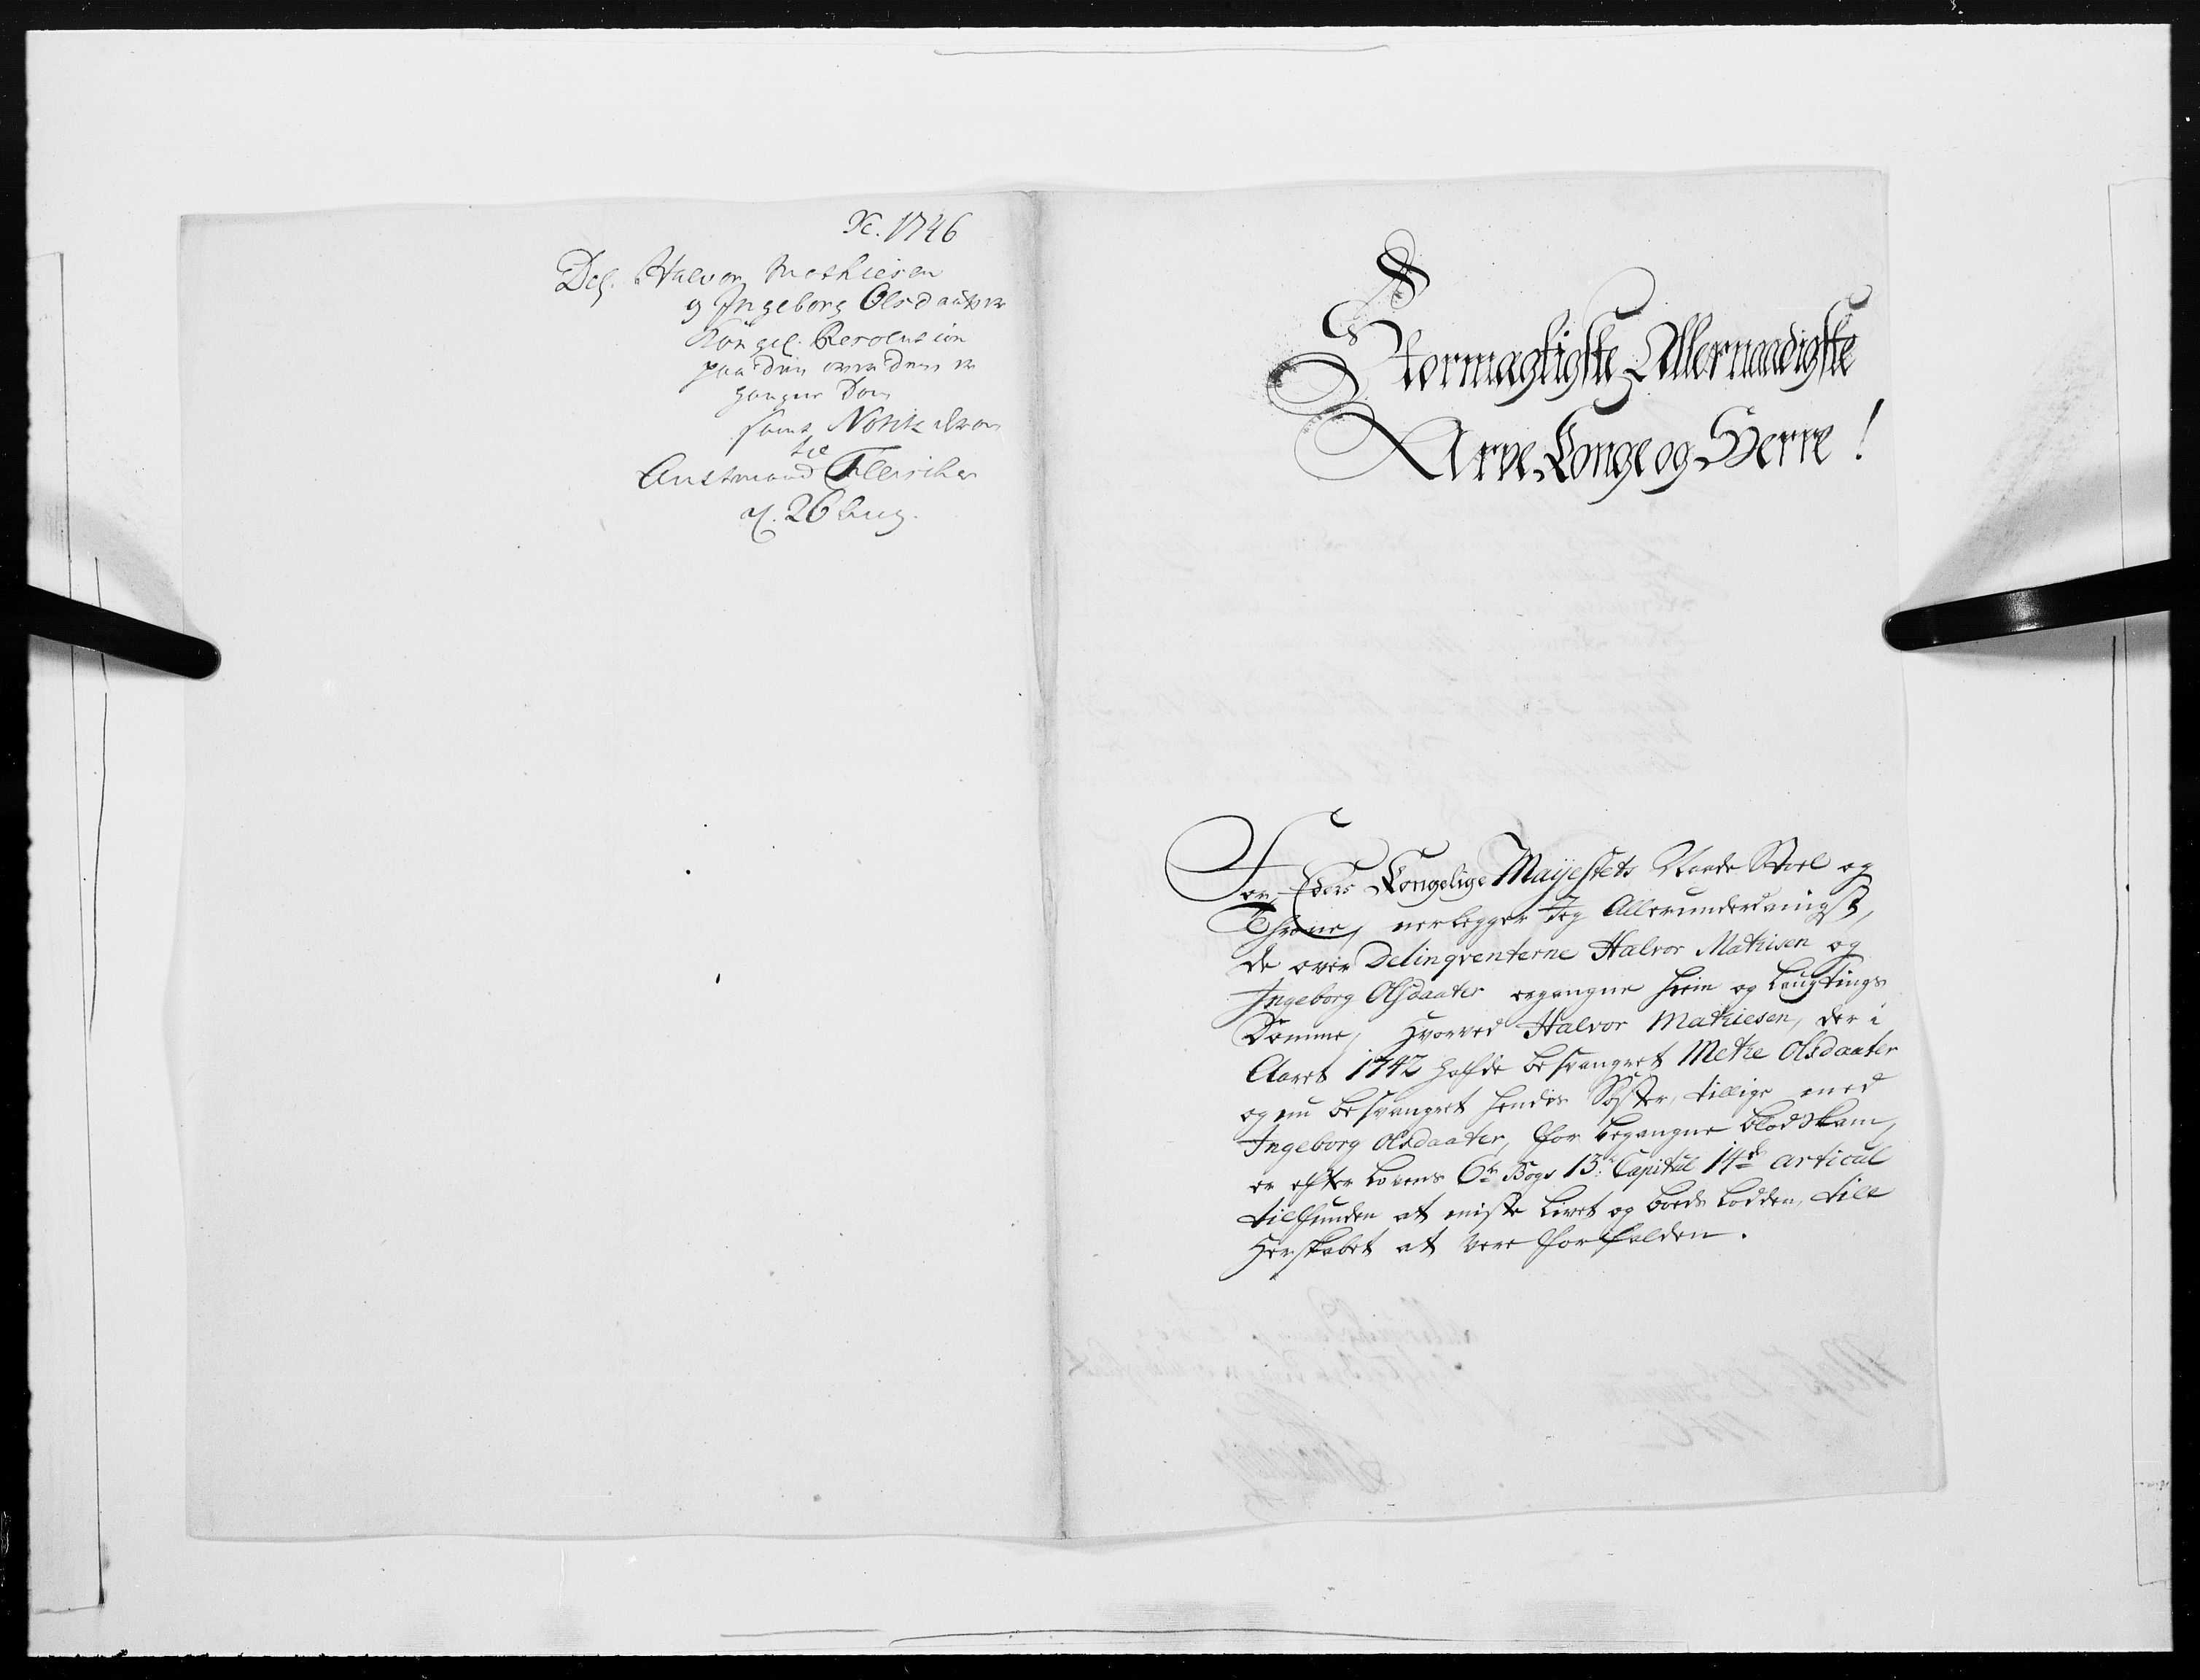 Xc. 1746
Del. Halvor Mathiesen
og Ingeborg Olsdaatter
Kongel. Resolution
paa den over dem er
gangne Dom
samt Notification
til
Amtmand Fleischer
af. 26 Aug.
Stormægtigste Allernaadigste
Arve Konge og Herre!
For Eders Kongelige Mayestets Naade Stoel og
Throne, nerlegger Jeg Allerunderdanigst,
de over Delinqventerne Halvor Mathisen og
Ingeborg Olsdaater ergangne Hiem og Laugtings
Domme, hvorved Halvor Mathiesen, der i
Aaret 1742 hafde besvangret Methe Olsdaater
og nu besvangret hendes Søster, tillige med
Ingeborg Olsdaater, for begangne blodskam,
er efter Lovens 6te Bogs 13de Capitul 14de articul
tilfunden at miste Livet og boeds Lodden, till
Herskabet at Vere forfalden.